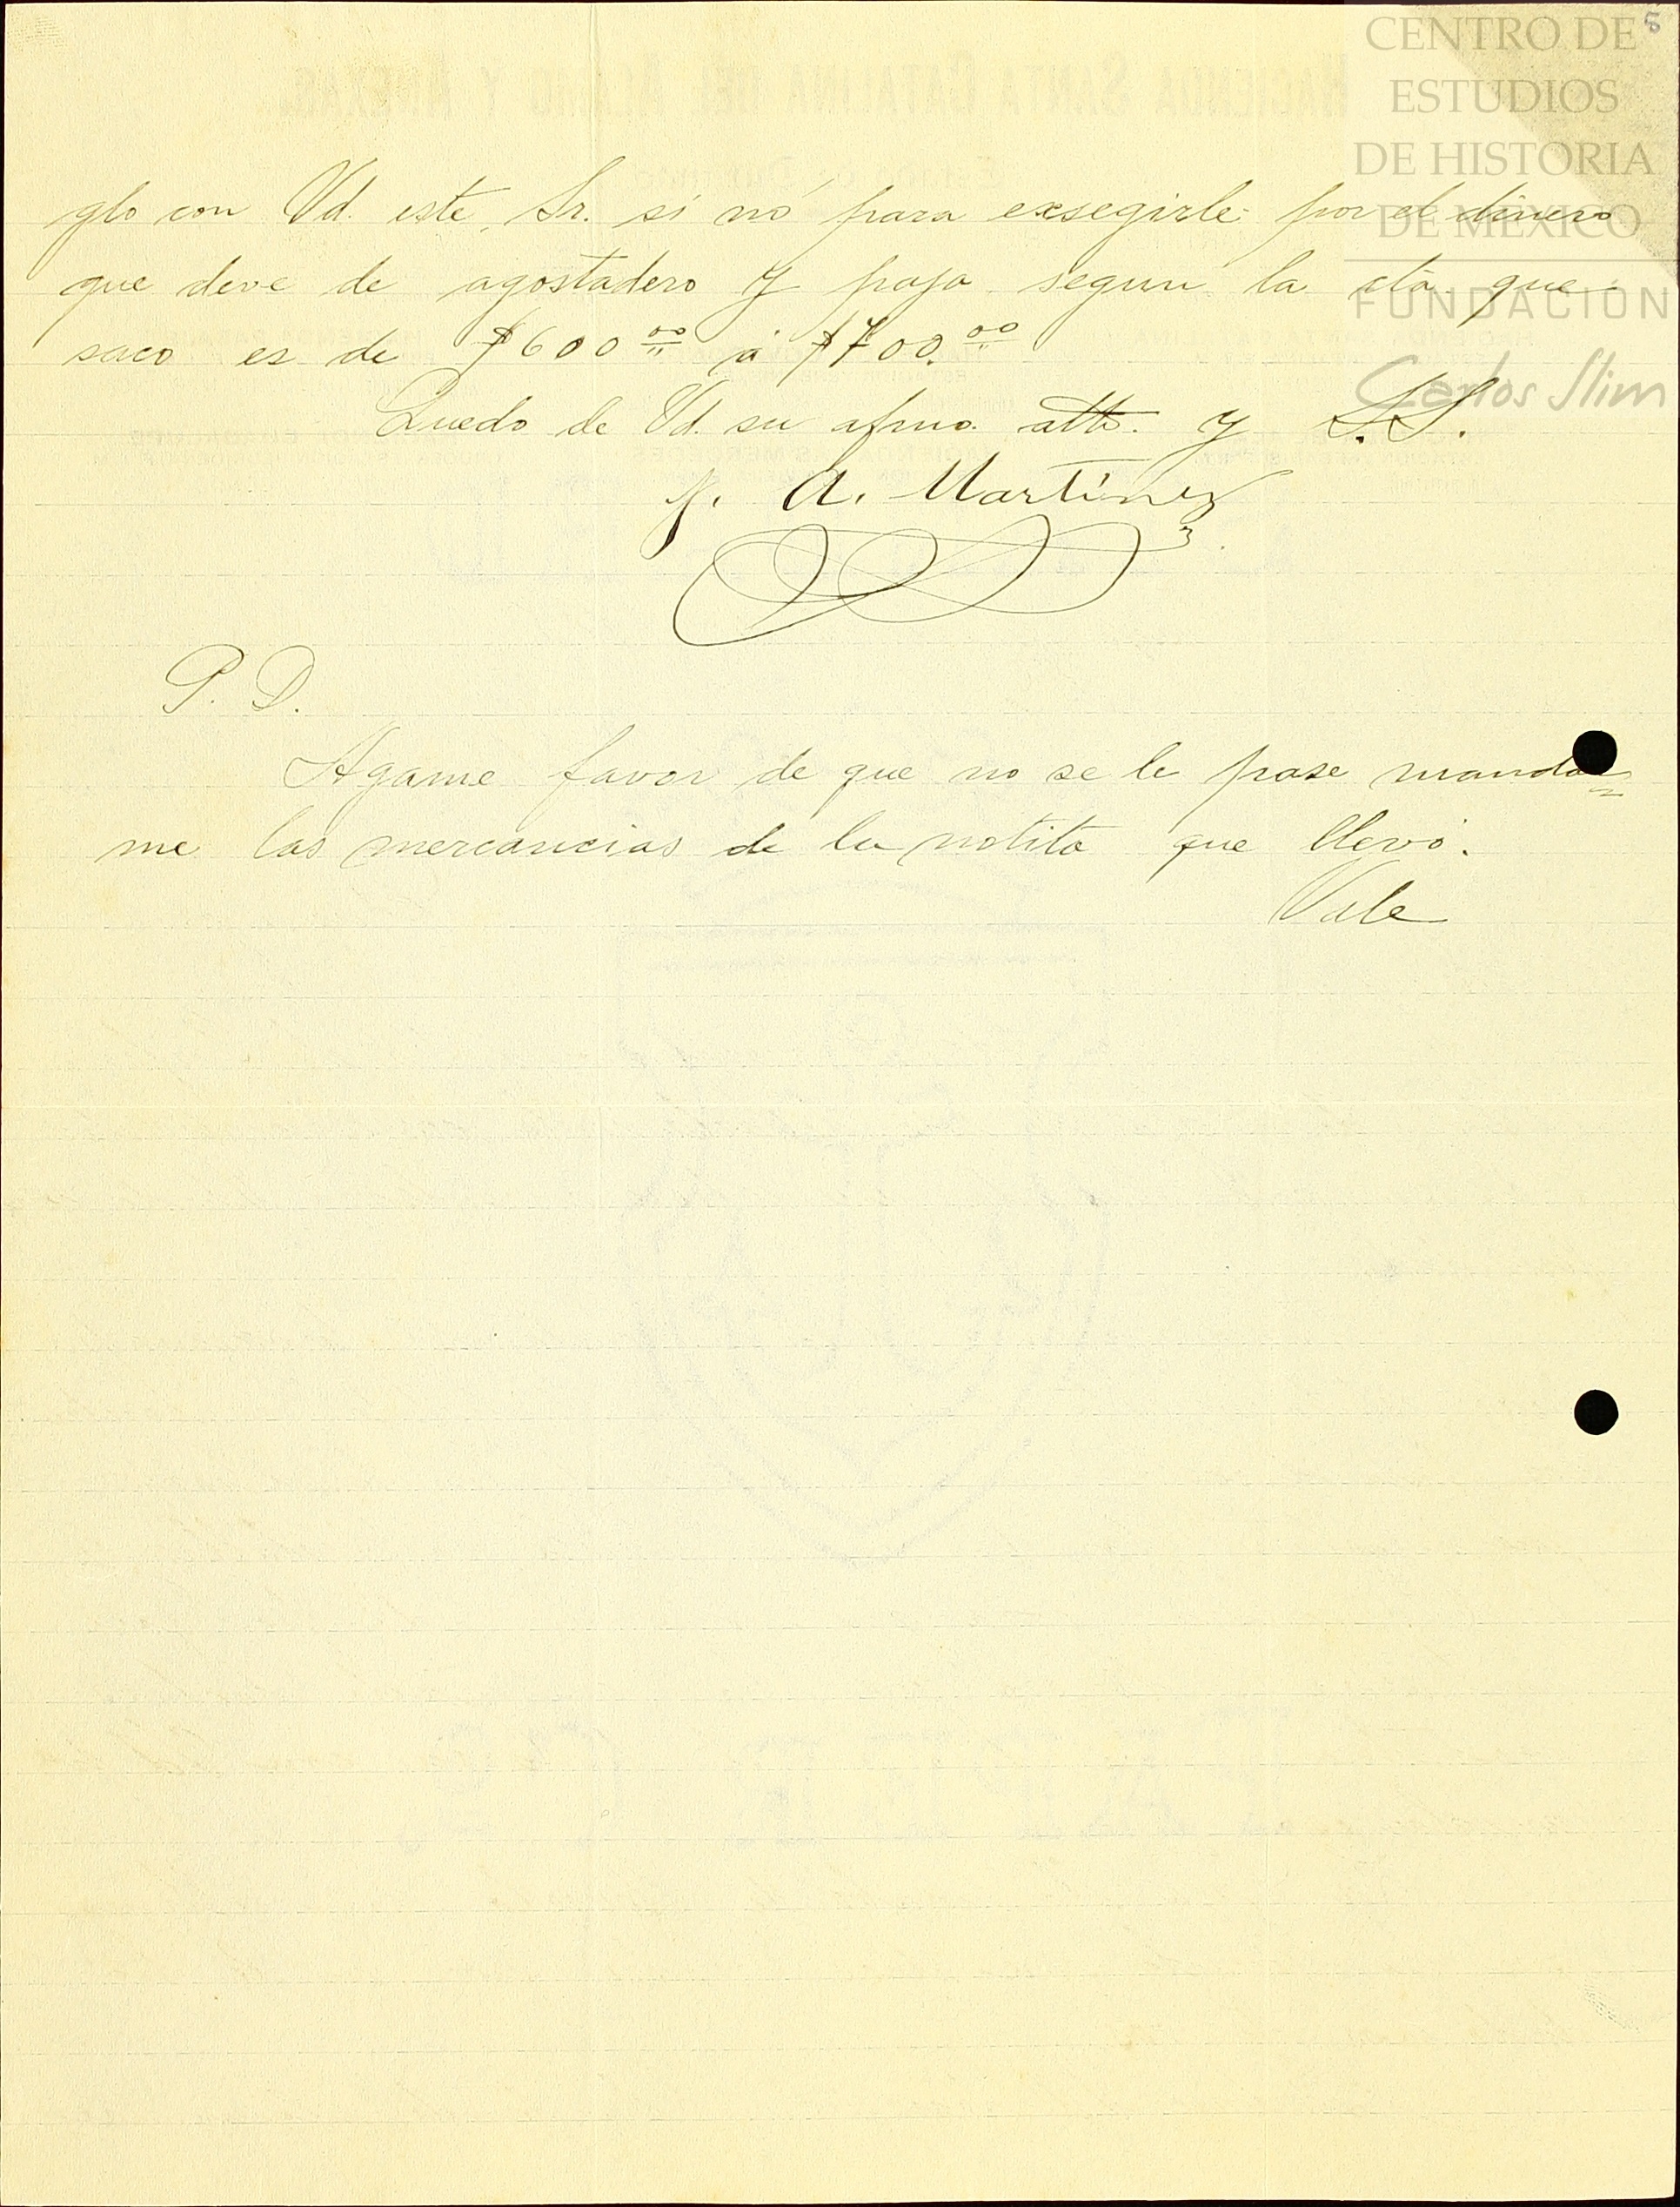 CENTRO DE
ESTUDIOS
DE HISTORIA
DE MÉXICO
FUNDACIÓN
Carlos Slim
glo con Vd. este, Sr. si nó para exsegirle por el dinero
que deve de agostadero y paja segun la cta que
saco es de $600.00 á $700.00
Quedo de Vd. su afmo. atto. y S.S.
J. A. Martínez
P. D.
Agame favor de que no se le pase mandar
me las mercancias de la notita que llevó.
Vale